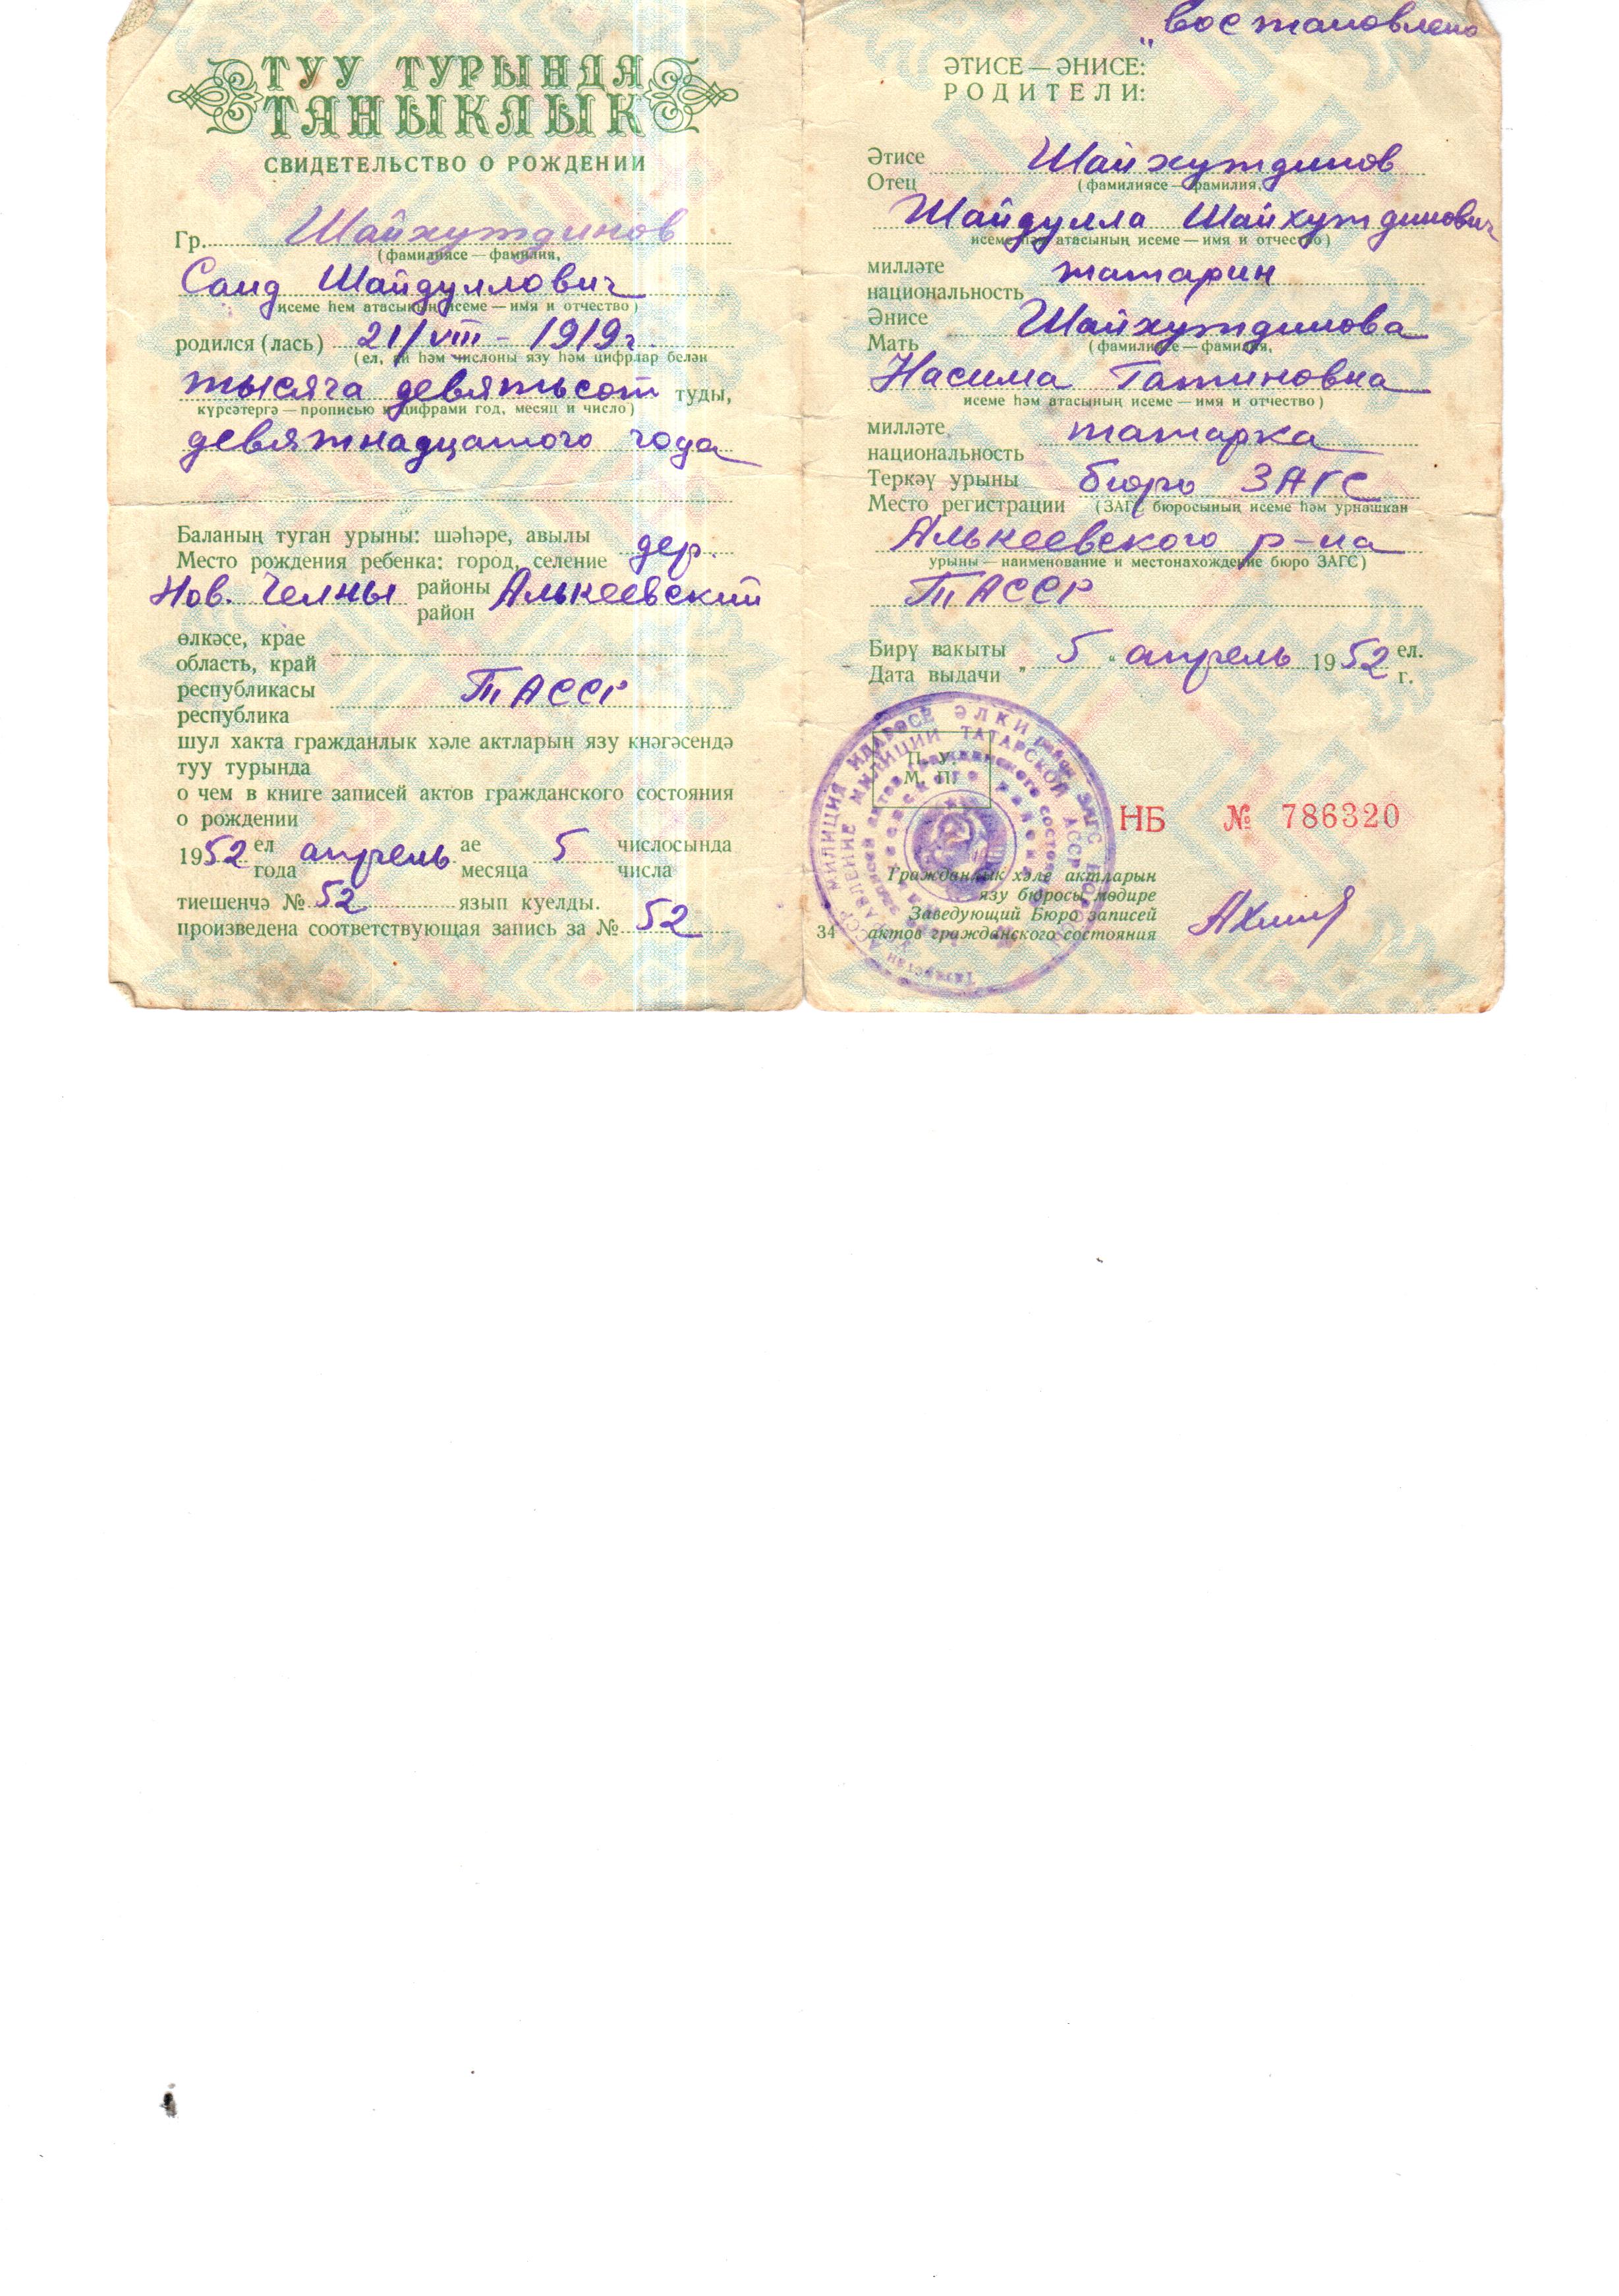 ТУУ ТУРЫНДА
ТАНЫКЛЫК
СВИДЕТЕЛЬСТВО О РОЖДЕНИИ
Гр. Шайхутдинов
(фамилиясе — фамилия,
Саид Шайдуллович
исеме һем атасының исеме — имя и отчество)
родился (лась) 21/VIII - 1919 г.
(ел, ай һәм числоны язу һәм цифрлар белән
тысяча девятьсот туды,
күрсәтергә — прописью и цифрами год, месяц и число)
девятнадцатого года
Баланың туган урыны: шәһәре, авылы
Место рождения ребенка: город, селение дер.
Нов. Челны районы Алькеевский
район
өлкәсе, крае
область, край
республикасы ТАССР
республика
шул хакта гражданлык хәле актларын язу кнәгәсендә
туу турында
о чем в книге записей актов гражданского состояния
о рождении
1952 ел апрель ае 5 числосында
года месяца числа
тиешенчә № 52 язып куелды.
произведена соответствующая запись за № 52
"востановлено
ӘТИСЕ — ӘНИСЕ:
РОДИТЕЛИ:
Әтисе Шайхутдинов
Отец (фамилиясе — фамилия,
Шайдулла Шайхутдинович
исеме һәм атасының исеме — имя и отчество)
милләте татарин
национальность
Әнисе Шайхутдинова
Мать (фамилиясе — фамилия,
Насима Гатиновна
исеме һәм атасының исеме — имя и отчество)
милләте татарка
национальность
Теркәү урыны бюро ЗАГС
Место регистрации (ЗАГС бюросының исеме һәм урнашкан
Алькеевского р-на
урыны — наименование и местонахождение бюро ЗАГС)
ТАССР
Бирү вакыты 5 апрель 1952 ел.
Дата выдачи г.
П. У.
М. П.
НБ № 786320
Гражданлык хәле актларын
язу бюросы мөдире
Заведующий Бюро записей
34 актов гражданского состояния